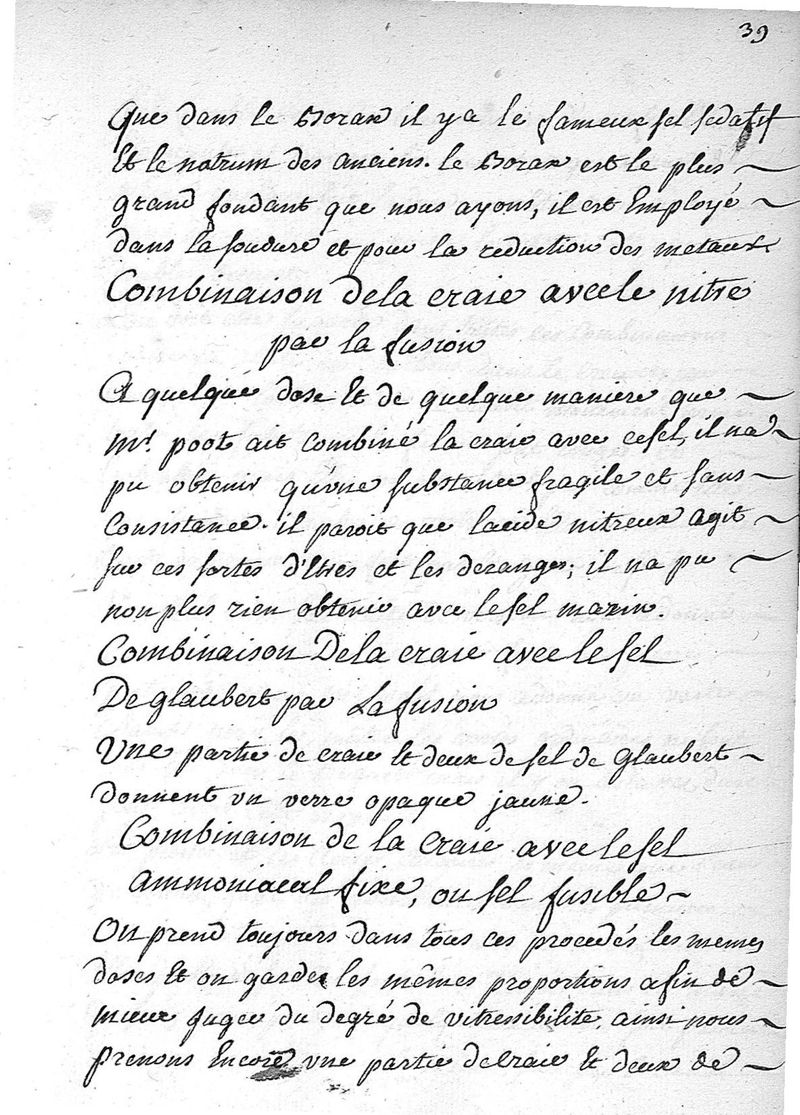 39
Que dans le Borax il y a le fameux sel sedatif
Et le natrum des anciens. le Borax est le plus
grand fondant que nous ayons, il est Employé
dans la soudure et pour la reduction des metaux
Combinaison de la craie avec le nitre
par la fusion
A quelque dose Et de quelque maniere que
Mr. poot ait combiné la craie avec ce sel, il na
pu obtenir qu'une substance fragile et sans
Consistance. il paroit que lacide nitreux agit
sur ces sortes d'Etres et les deranges; il na pu
non plus rien obtenir avec le sel marin.
Combinaison De la craie avec le sel
De glaubert par La fusion
Une partie de craie Et deux de sel de Glaubert
donnent un verre opaque jaune.
Combinaison de la Craie avec le sel
ammoniacal fixe, ou sel fusible
On prend toujours dans tous ces procedés les memes
doses Et on garde les mêmes proportions afin de
mieux juger du degré de vitressibilité, ainsi nous
prenons Encore une partie de Craie Et deux de